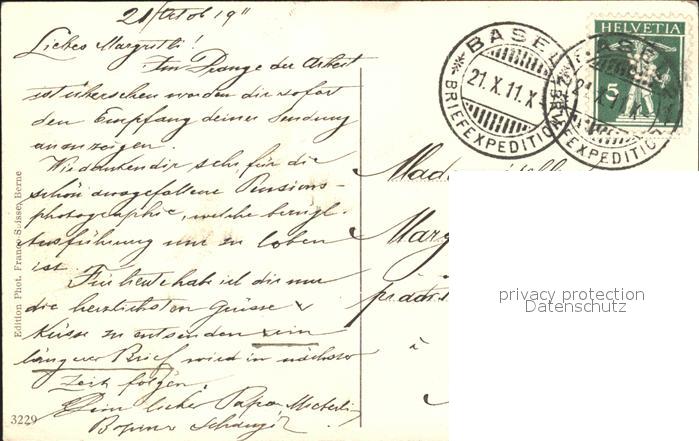 21/Octob 1911
Liebes Margritli!
Im Drange der Arbeit
ist übersehen worden dir sofort
den Empfang deiner Sendung
anzuzeigen.
Wir danken dir sehr für die
schön ausgefallene Pensions-
photographie, welche bezügl.
Ausführung nur zu loben
ist. Für heute habe ich dir nur
die herzlichsten Grüsse &
Küsse zu entsenden ein
längerer Brief wird in nächster
Zeit folgen.
Dein lieber Papa,
Edition Phot. Franco-Suisse, Berne
3229
BASEL
21.X.11.X
BRIEFEXPEDITION
BASEL
21.X.11.X
BRIEFEXPEDITION
HELVETIA
5
Made
Marg
privacy protection
Datenschutz
à